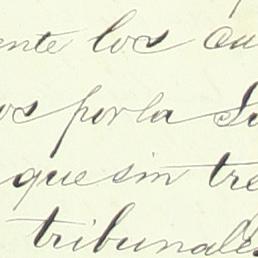 ente los cu
os por la Su
que sin tre
tribunales